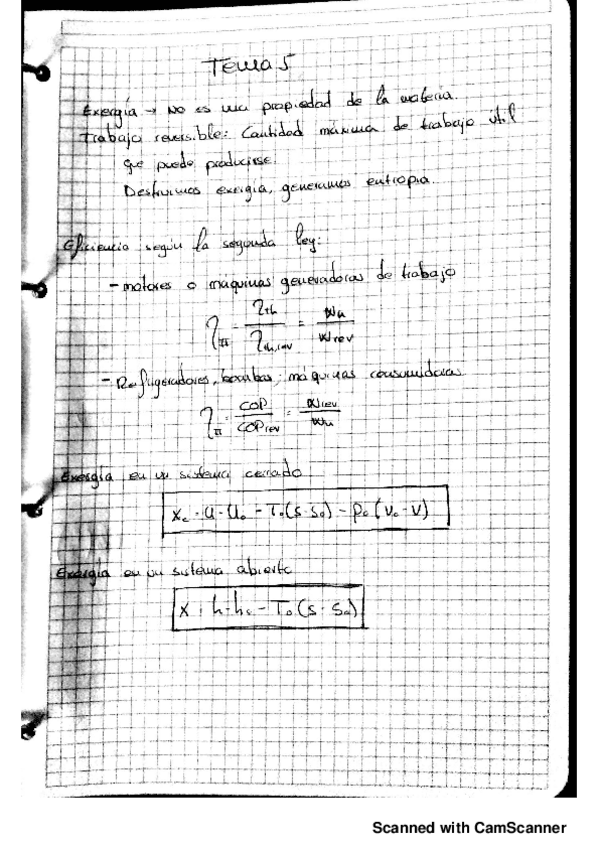 Tema 5
Exergía → No es una propiedad de la materia.
Trabajo reversible: Cantidad máxima de trabajo útil
que puede producirse.
Destruimos exergía, generamos entropia.
Eficiencia según la segunda ley:
- motores o maquinas generadoras de trabajo
η_II = η_th / η_th,rev = W_u / W_rev
- Refrigeradores, bombas, máquinas consumidoras
η_II = COP / COP_rev = W_rev / W_u
Exergía en un sistema cerrado
x_c = u - u_0 - T_0(s - s_0) - p_0(v_0 - v)
Exergía en un sistema abierto
x = h - h_0 - T_0(s - s_0)
Scanned with CamScanner